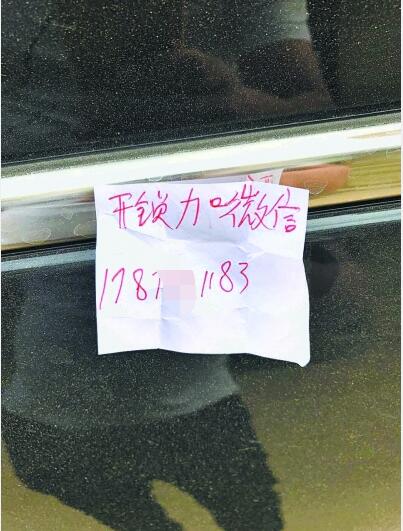 开锁加微信
1787 1183